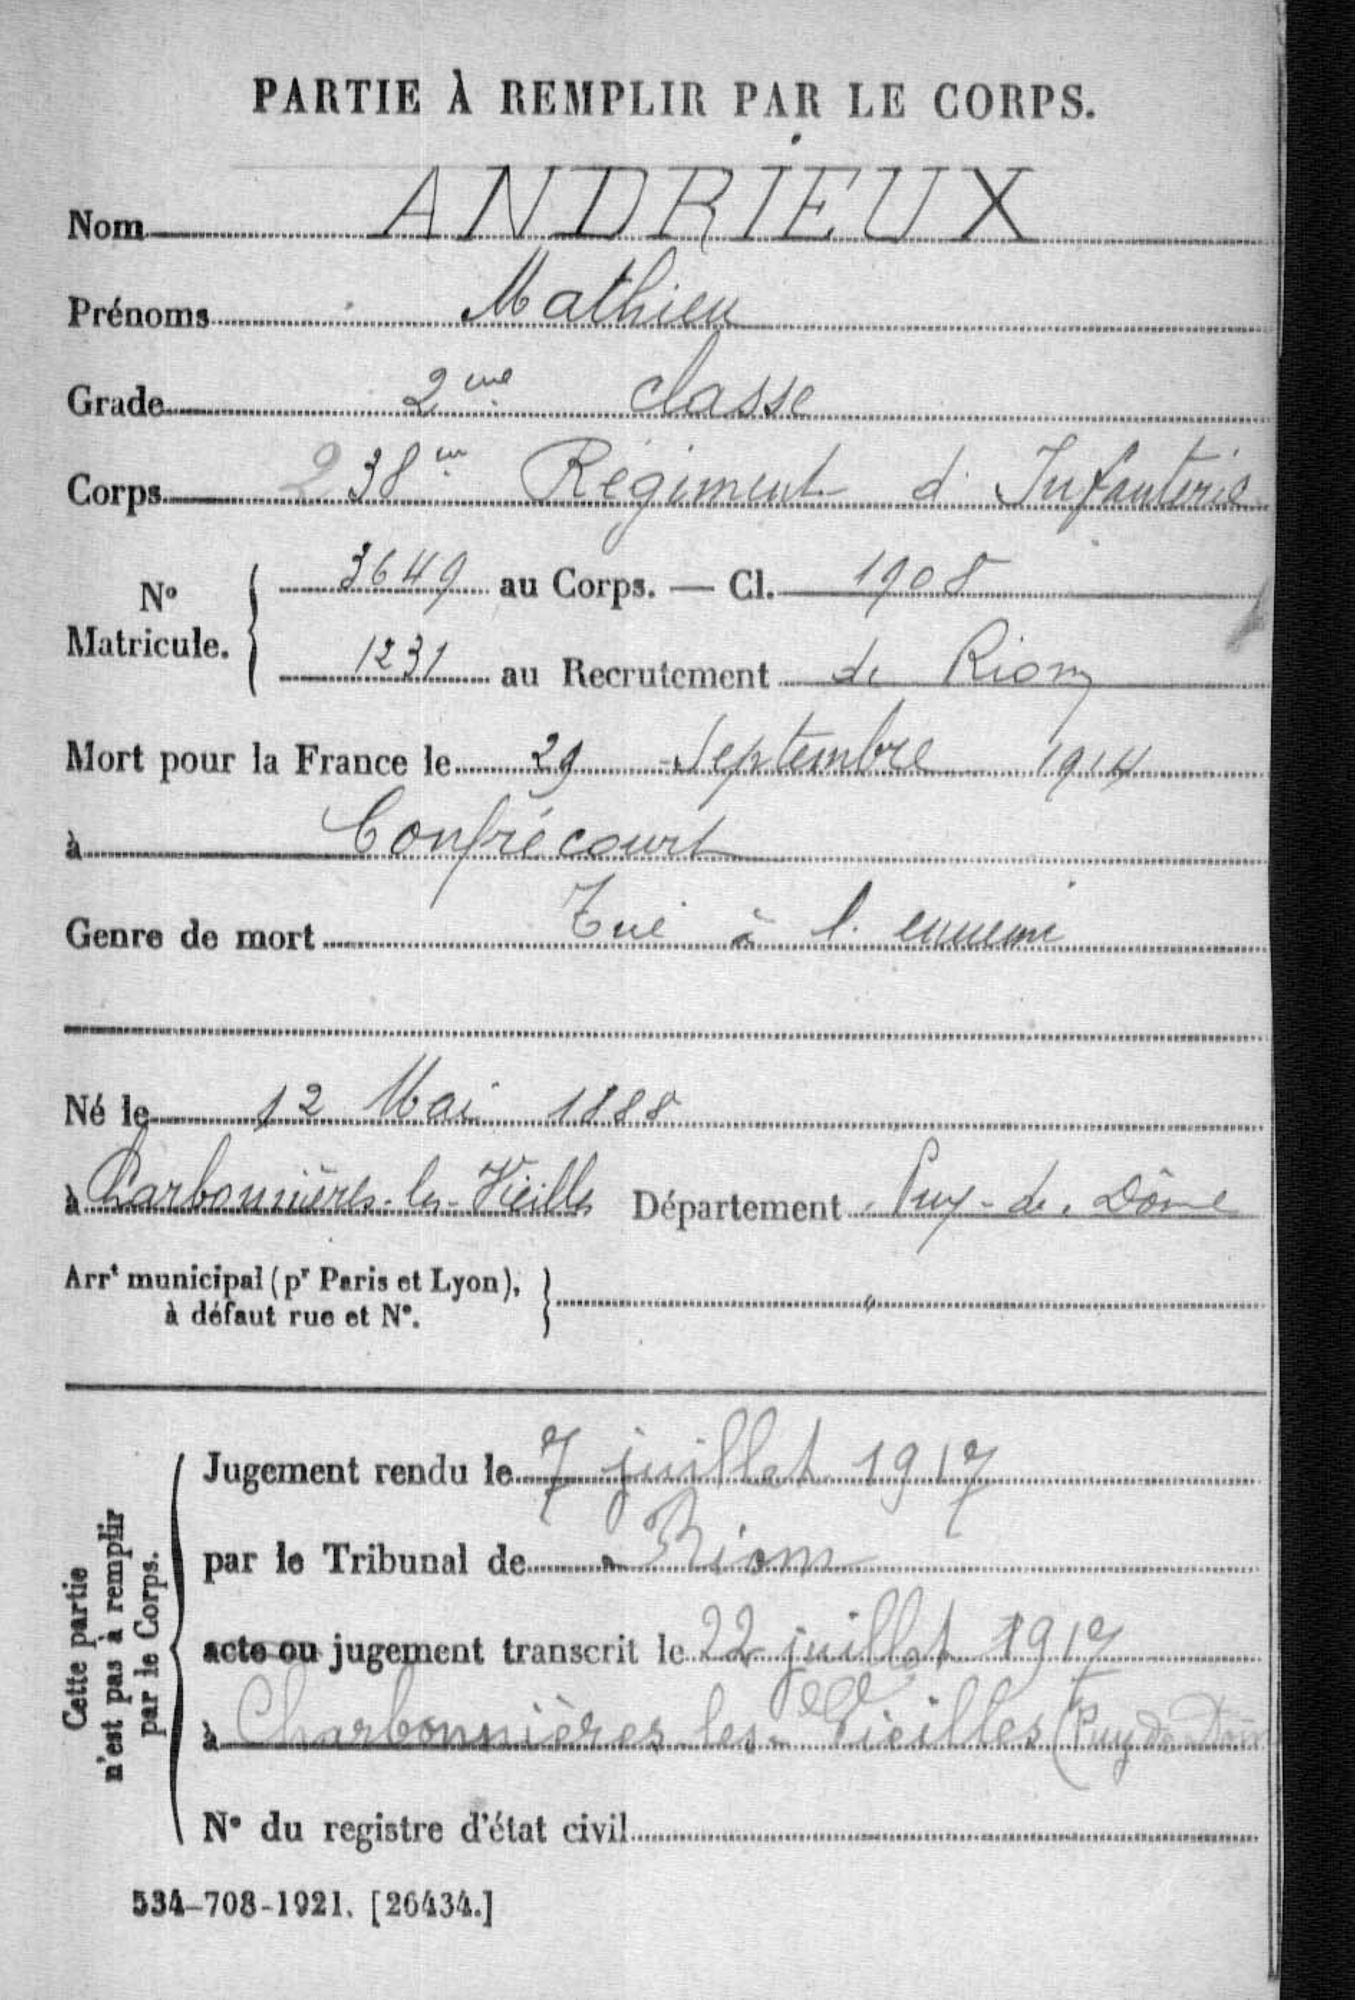 PARTIE À REMPLIR PAR LE CORPS.
Nom ANDRIEUX
Prénoms Mathieu
Grade 2me classe
Corps 238me Régiment d'Infanterie
No Matricule. 3649 au Corps. — Cl. 1908
1231 au Recrutement de Riom
Mort pour la France le 29 Septembre 1914
à Confrécourt
Genre de mort Tué à l'ennemi
Né le 12 Mai 1888
à Charbonnières-les-Vieilles Département Puy-de-Dôme
Arrt municipal (pr Paris et Lyon), "
à défaut rue et No.
Cette partie
n'est pas à remplir
par le Corps.
Jugement rendu le 7 juillet 1917
par le Tribunal de Riom
acte ou jugement transcrit le 22 juillet 1917
à Charbonnières les Vieilles (Puy de Dôm
No du registre d'état civil
534-708-1921. [26434.]